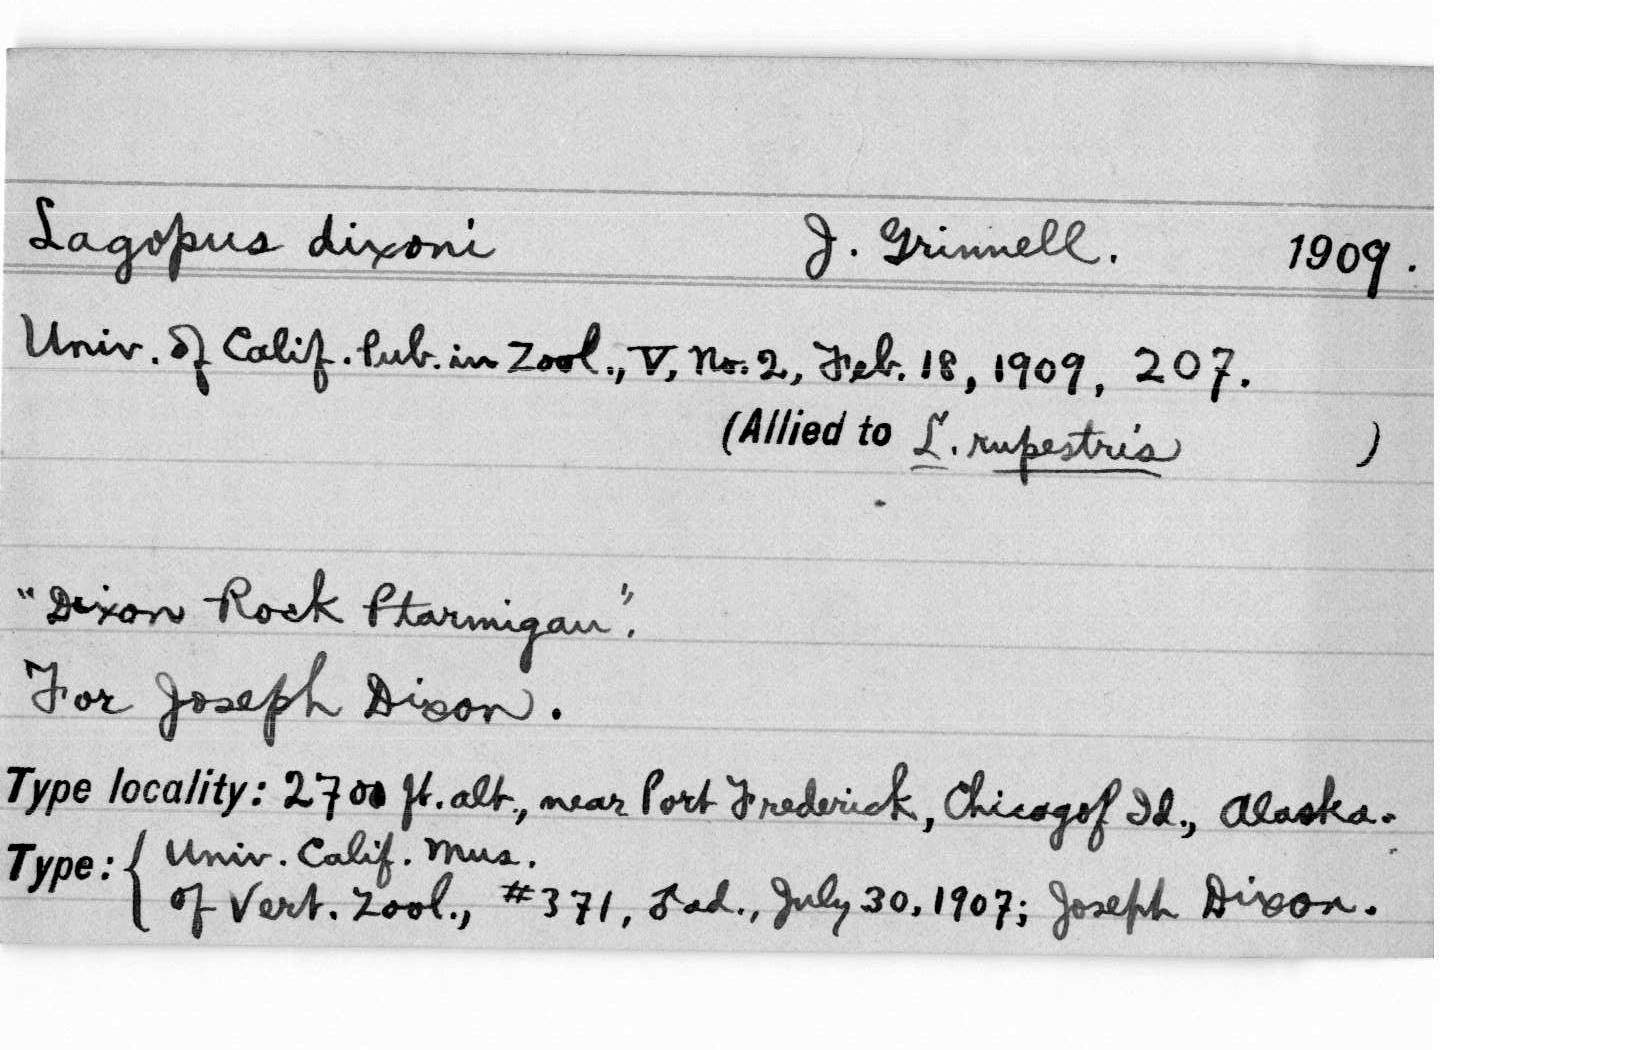 Lagopus dixoni J. Grinnell. 1909.
Univ. of Calif. Pub. in Zool., V, No. 2, Feb. 18, 1909, 207.
(Allied to L. rupestris )
"Dixon Rock Ptarmigan".
For Joseph Dixon.
Type locality: 2700 ft. alt., near Port Frederick, Chicagof Id., Alaska.
Type: { Univ. Calif. Mus.
of Vert. Zool., #371, ♂ ad., July 30, 1907; Joseph Dixon.